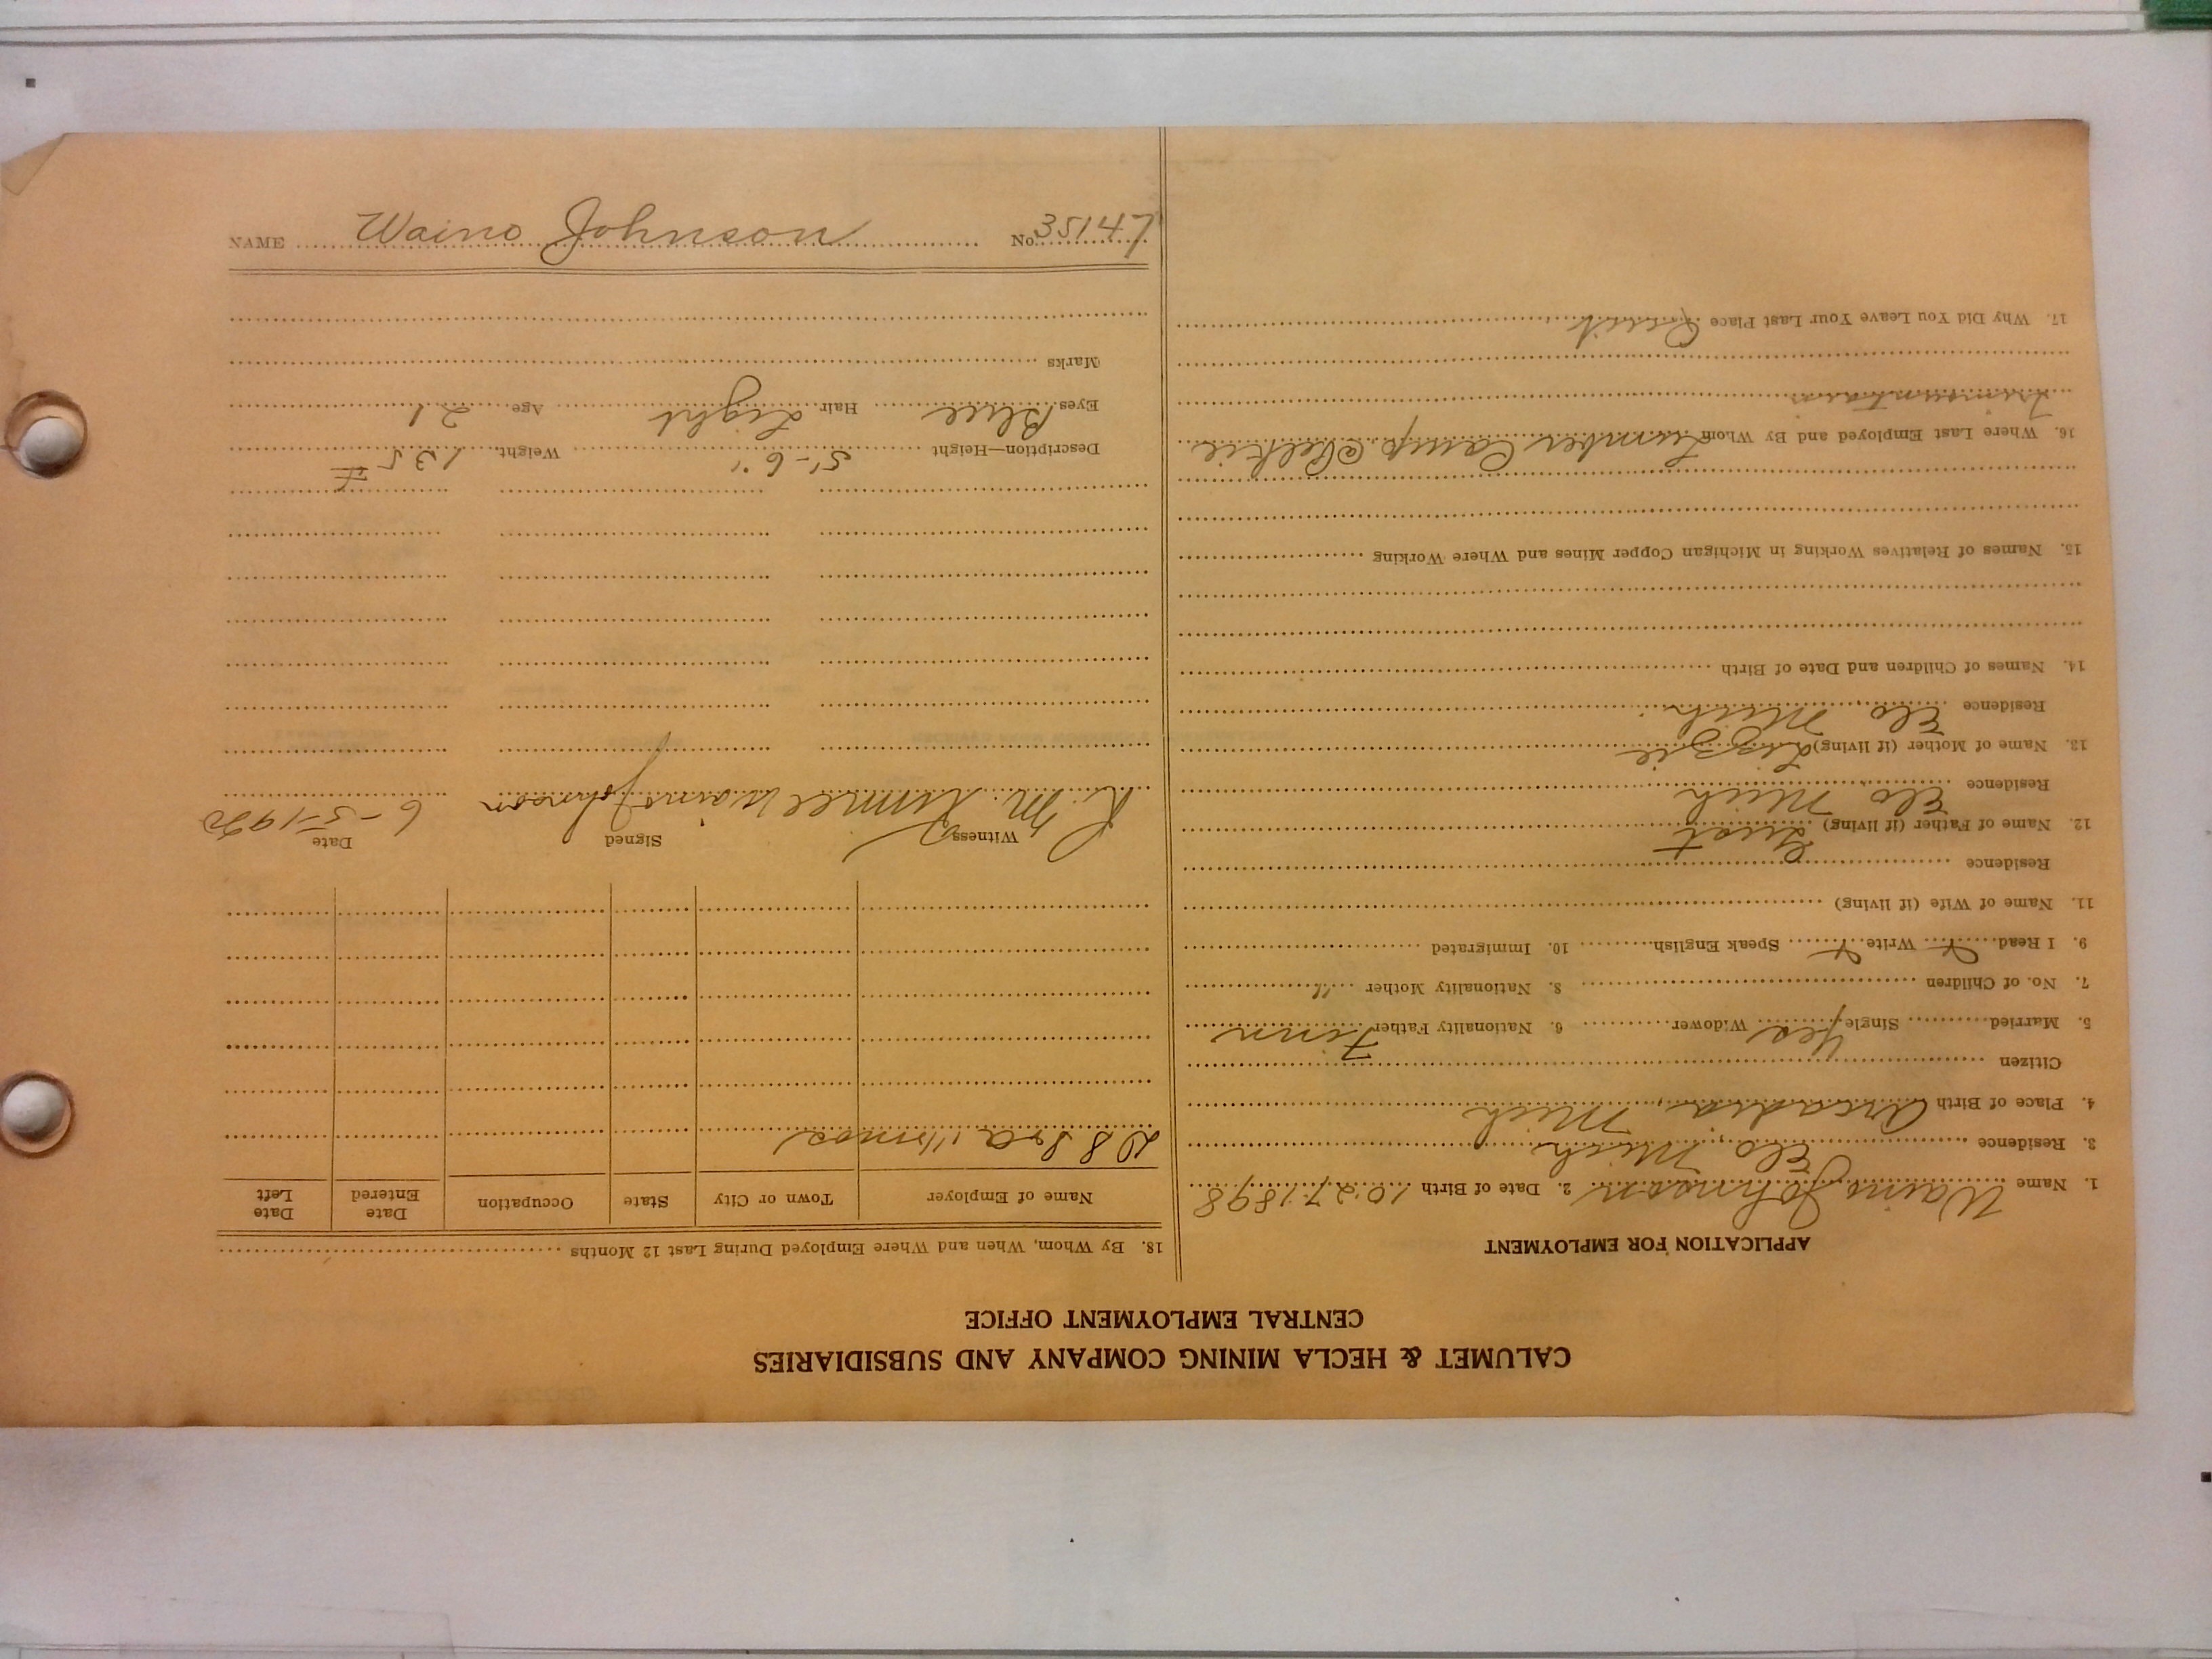 CALUMET & HECLA MINING COMPANY AND SUBSIDIARIES
CENTRAL EMPLOYMENT OFFICE
APPLICATION FOR EMPLOYMENT
1. Name Waino Johnson 2. Date of Birth 10.27.1898
3. Residence Elo, Mich
4. Place of Birth Arcadia, Mich
Citizen
5. Married Single Yes Widower 6. Nationality Father Finn
7. No. of Children 8. Nationality Mother "
9. I Read Write Speak English 10. Immigrated
11. Name of Wife (if living)
Residence
12. Name of Father (if living) Gust
Residence Elo Mich
13. Name of Mother (if living) Lizzie
Residence Elo, Mich
14. Names of Children and Date of Birth
15. Names of Relatives Working in Michigan Copper Mines and Where Working
16. Where Last Employed and By Whom Lumber Camp @ Pelkie
17. Why Did You Leave Your Last Place Quit
18. By Whom, When and Where Employed During Last 12 Months
Name of Employer Town or City State Occupation Date Entered Date Left
Witness Signed Date
R. M. Waino Johnson 6-5-1920
Description—Height 5'-6" Weight 135 #
Eyes Blue Hair Light Age 21
Marks
NAME Waino Johnson No. 35147